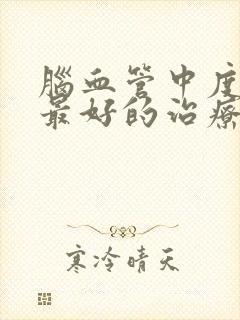 腦血管中度
最好的治療
寒冷晴天